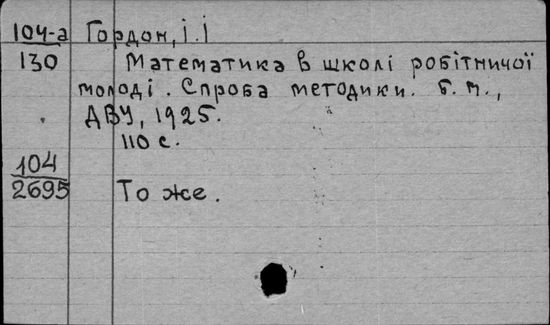 104-а Гордон, І.І
130 Математика в школі робітничої
молоді. Спроба методики. б.м.,
ДВУ, 1925.
110 с.
104
2695 То же.